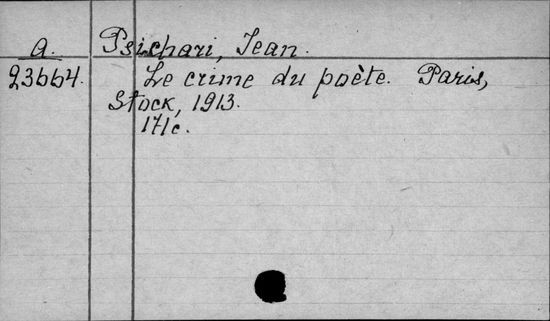 a. Psichari, Jean.
23664. Le crime du poète. Paris,
Stock, 1913.
171c.